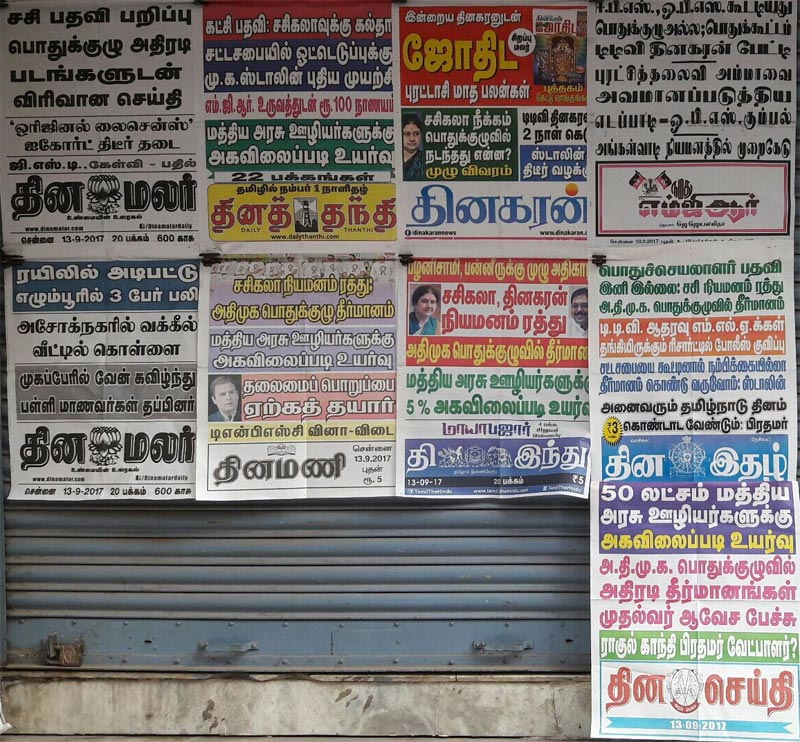 சசி பதவி பறிப்பு
பொதுக்குழு அதிரடி
படங்களுடன்
விரிவான செய்தி
'ஒரிஜினல் லைசென்ஸ்'
ஐகோர்ட் திடீர் தடை
ஜி.எஸ்.டி.. கேள்வி - பதில்
தின மலர்
உண்மையின் உரைகல்
www.dinamalar.com
f/Dinamalardaily
சென்னை 13-9-2017 20 பக்கம் 600 காசு
கட்சி பதவி: சசிகலாவுக்கு கல்தா
சட்டசபையில் ஓட்டெடுப்புக்கு
மு.க.ஸ்டாலின் புதிய முயற்சி
எம்.ஜி.ஆர். உருவத்துடன் ரூ.100 நாணயம்
மத்திய அரசு ஊழியர்களுக்கு
அகவிலைப்படி உயர்வு
22 பக்கங்கள்
தமிழில் நம்பர் 1 நாளிதழ்
தினத் தந்தி
DAILY THANTHI
www.dailythanthi.com
இன்றைய தினகரனுடன்
ஜோதிட
சிறப்பு மலர்
புரட்டாசி மாத பலன்கள்
புத்தகம்
சசிகலா நீக்கம்
பொதுக்குழுவில்
நடந்தது என்ன?
முழு விவரம்
டிடிவி தினகரன்
2 நாள் கெடு
ஸ்டாலின்
திடீர் வழக்கு
தினகரன்
@dinakarannews
www.dinakaran.c
ஈ.பி.எஸ்.,ஓ.பி.எஸ். கூட்டியது
பொதுக்குழு அல்ல;பொதுக்கூட்டம்
டிடிவி தினகரன் பேட்டி
புரட்சித்தலைவி அம்மாவை
அவமானப்படுத்திய
எடப்பாடி-ஓ.பி.எஸ்.கும்பல்
அங்கன்வாடி நியமனத்தில் முறைகேடு
எம்ஜிஆர்
ரயிலில் அடிபட்டு
எழும்பூரில் 3 பேர் பலி
அசோக்நகரில் வக்கீல்
வீட்டில் கொள்ளை
முகப்பேரில் வேன் கவிழ்ந்து
பள்ளி மாணவர்கள் தப்பினர்
தின மலர்
உண்மையின் உரைகல்
www.dinamalar.com
f/Dinamalardaily
சென்னை 13-9-2017 20 பக்கம் 600 காசு
சசிகலா நியமனம் ரத்து:
அதிமுக பொதுக்குழு தீர்மானம்
மத்திய அரசு ஊழியர்களுக்கு
அகவிலைப்படி உயர்வு
தலைமைப் பொறுப்பை
ஏற்கத் தயார்
டிஎன்பிஎஸ்சி வினா-விடை
தினமணி
சென்னை
13.9.2017
புதன்
ரூ. 5
பழனிசாமி, பன்னீருக்கு முழு அதிகா
சசிகலா, தினகரன்
நியமனம் ரத்து
அதிமுக பொதுக்குழுவில் தீர்மான
மத்திய அரசு ஊழியர்களுக்கு
5 % அகவிலைப்படி உயர்வு
மாயாபஜார்
தி இந்து
13-09-17 20 பக்கம் ₹5
f TamilTheHindu www.tamil.thehindu.com TamilTheHindu
பொதுச்செயலாளர் பதவி
இனி இல்லை: சசி நியமனம் ரத்து
அ.தி.மு.க. பொதுக்குழுவில் தீர்மானம்
டி.டி.வி. ஆதரவு எம்.எல்.ஏ.க்கள்
தங்கியிருக்கும் ரிசார்ட்டில் போலீஸ் குவிப்பு
சட்டசபையை கூட்டினால் நம்பிக்கையில்லா
தீர்மானம் கொண்டு வருவோம்: ஸ்டாலின்
அனைவரும் தமிழ்நாடு தினம்
கொண்டாட வேண்டும்: பிரதமர்
₹3
தின இதழ்
50 லட்சம் மத்திய
அரசு ஊழியர்களுக்கு
அகவிலைப்படி உயர்வு
அ.தி.மு.க. பொதுக்குழுவில்
அதிரடி தீர்மானங்கள்
முதல்வர் ஆவேச பேச்சு
ராகுல் காந்தி பிரதமர் வேட்பாளர்?
தின செய்தி
13-09-2017